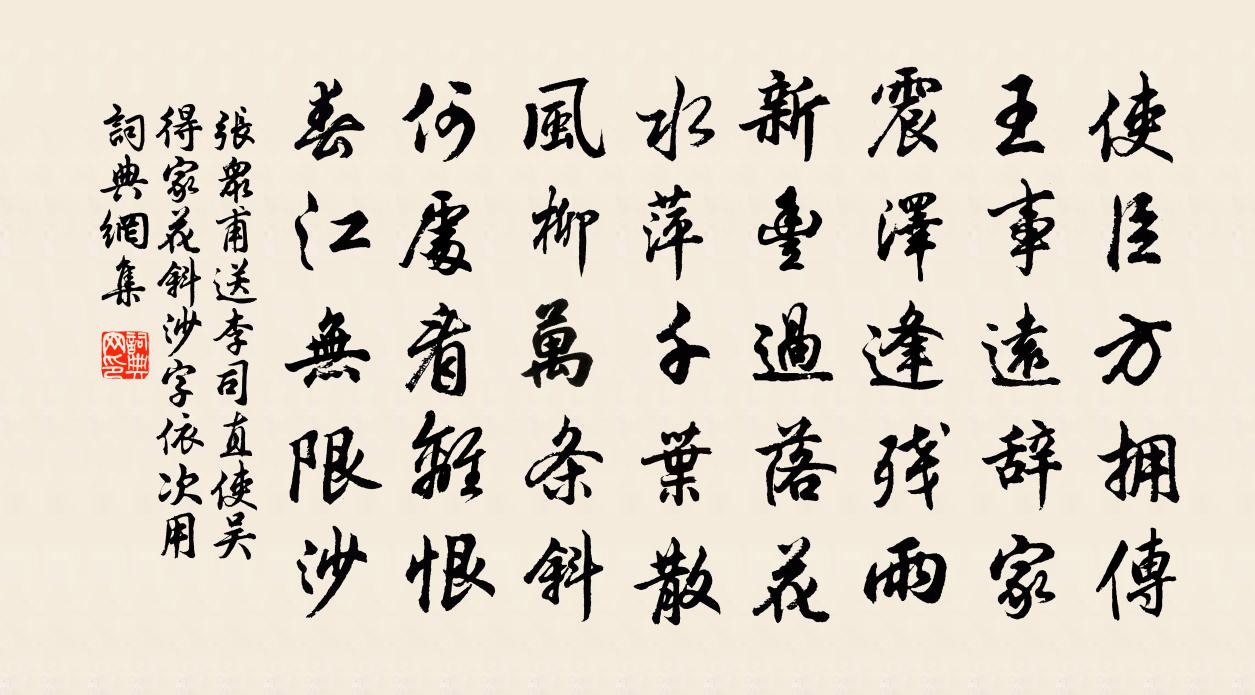 使臣方拥傳
王事遠辞家
震澤逢残雨
新豊過落花
水萍千葉散
風柳萬条斜
何處看離恨
春江無限沙
張衆甫送李司直使吴
得家花斜沙字依次用
詞典網集
詞典网印